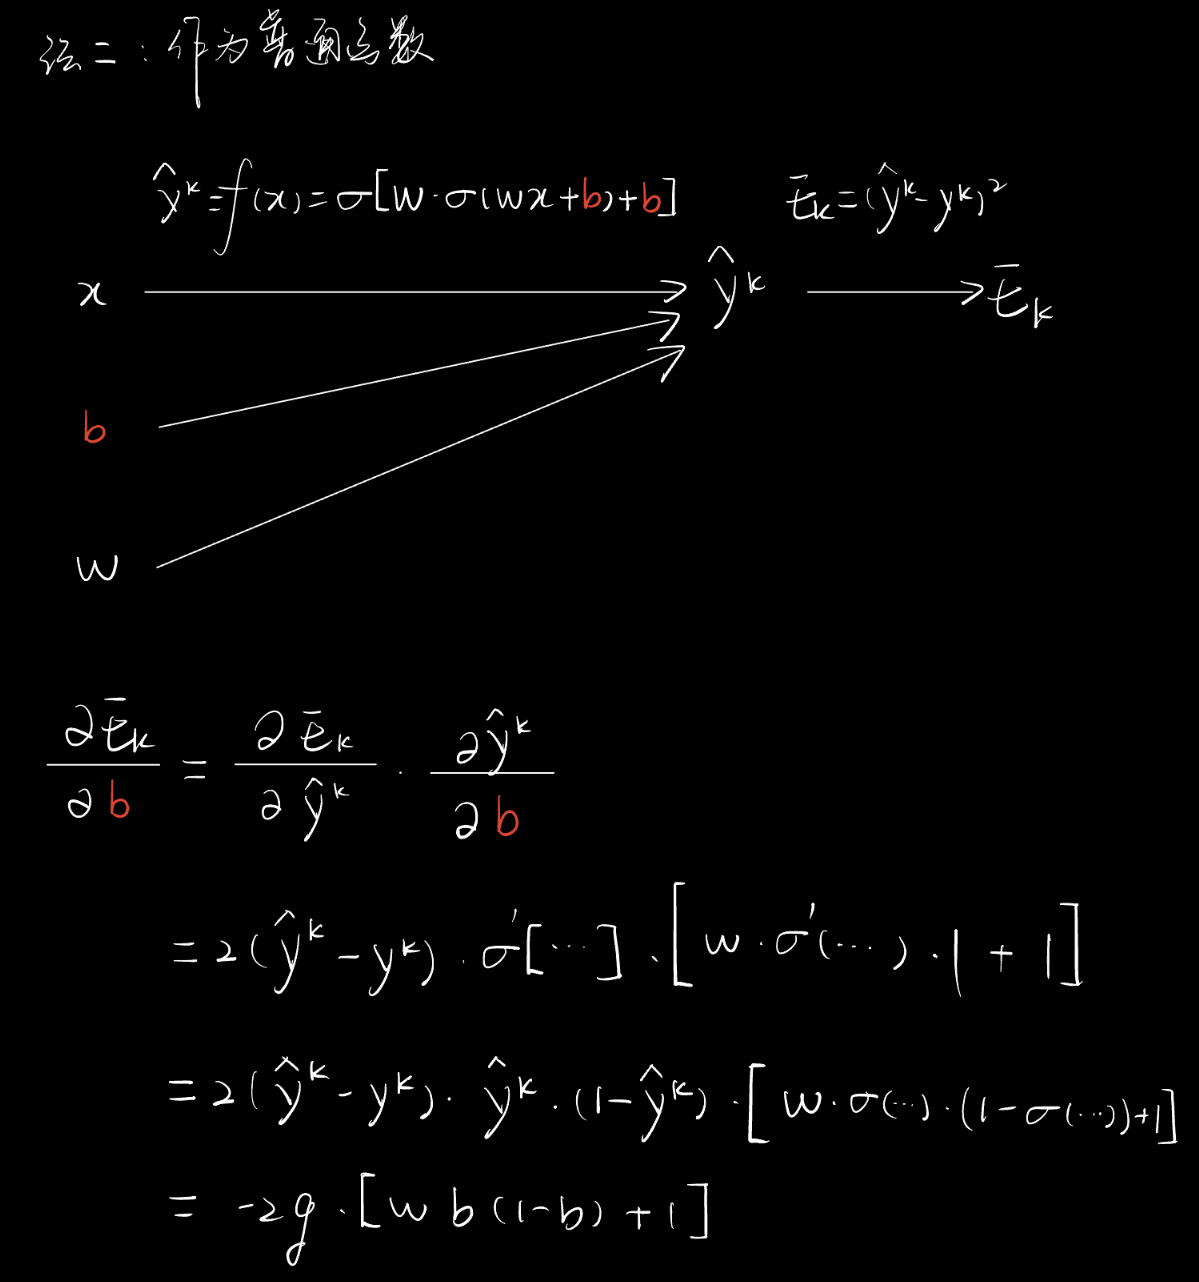 法二：作为普通函数
ŷᵏ=f(x)=σ[w·σ(wx+b)+b] Eₖ=(ŷᵏ-yᵏ)²
x ŷᵏ Eₖ
b
w
∂Eₖ/∂b = ∂Eₖ/∂ŷᵏ · ∂ŷᵏ/∂b
=2(ŷᵏ-yᵏ)·σ'[…]·[w·σ'(…)·1+1]
=2(ŷᵏ-yᵏ)·ŷᵏ·(1-ŷᵏ)·[w·σ(…)·(1-σ(…))+1]
= -2g·[w b(1-b)+1]